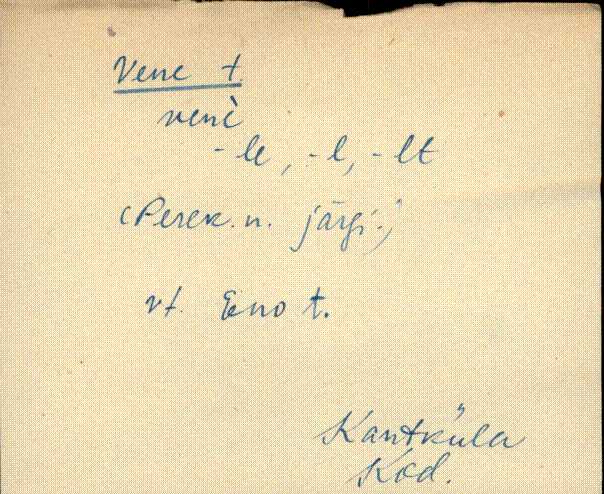 Vene t.
venè
-le, -l, -lt
(Perek. n. järgi.)
vt. Eno t.
Kantküla
Kod.